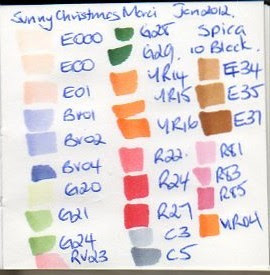 Sunny Christmas Merci Jan 2012.
E000
E00
E01
BV01
BV02
BV04
G20
G21
G24
RV23
G28
G29
YR14
YR15
YR16
R22
R24
R27
C3
C5
Spica
10 Black
E34
E35
E37
R81
R83
R85
YR04